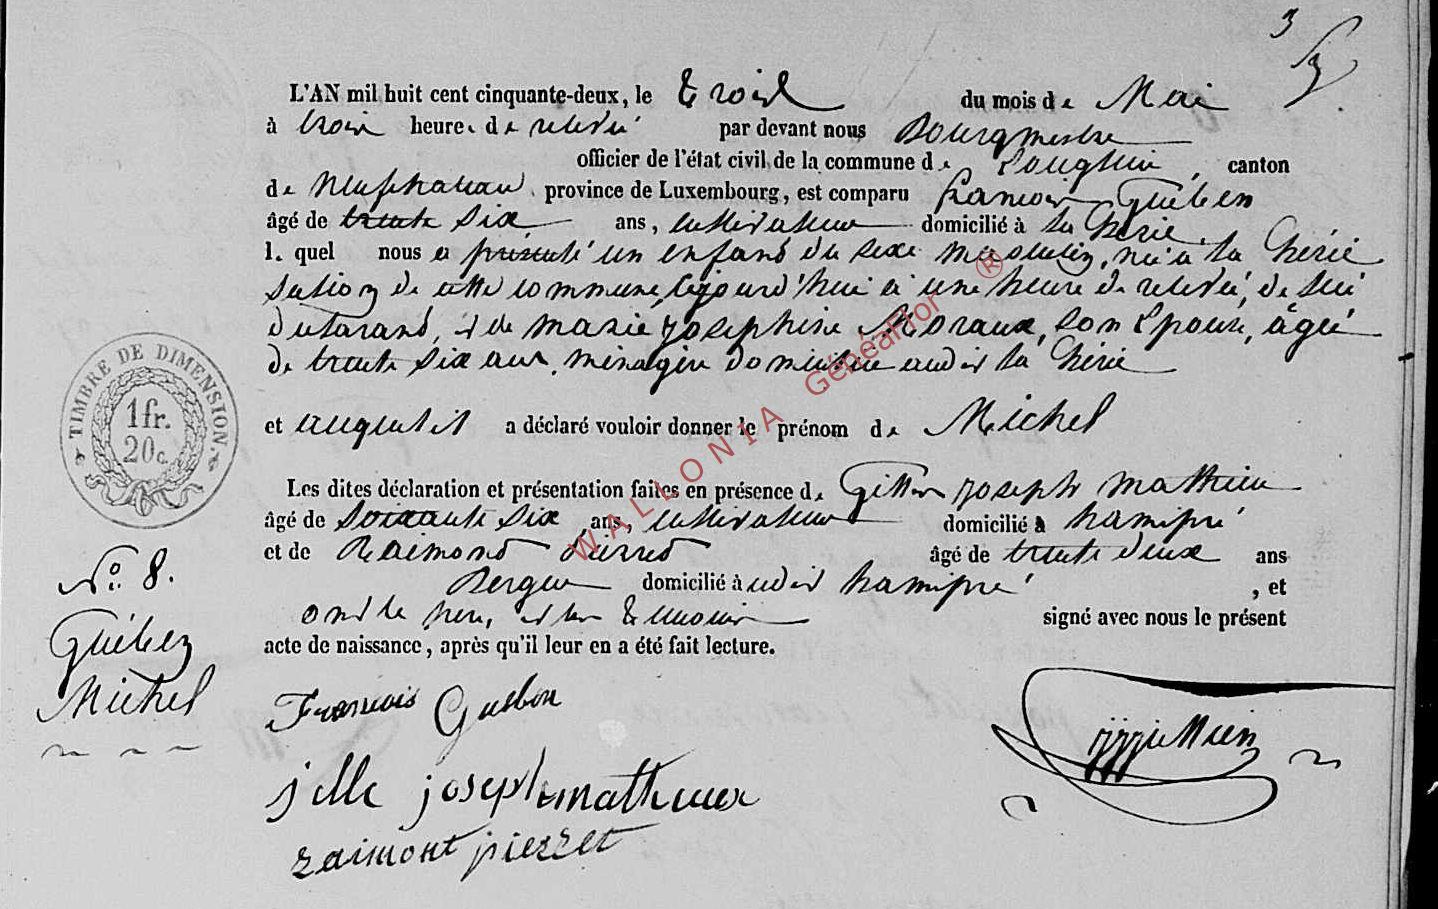 3
L'AN mil huit cent cinquante-deux, le trois du mois de Mai
à trois heures de relevé par devant nous Bourgmestre
officier de l'état civil de la commune de Longlier, canton
de Neufchateau province de Luxembourg, est comparu François Guében
âgé de trente six ans, cultivateur domicilié à La Hérie,
lequel nous a présenté un enfant du sexe masculin, né à la Hérie
section de cette commune, cejourd'hui à une heure de relevé, de lui
déclarant, et de marie josephine Moraux, son épouse, âgée
de trente six ans, ménagère domiciliée audit la Hérie
et auquel il a déclaré vouloir donner le prénom de Michel
Les dites déclaration et présentation faites en présence de joseph mathieu
âgé de soixante six ans, cultivateur domicilié à hamipré
et de Raimond Pierret âgé de trente deux ans
Berger domicilié à udit hamipré, et
ont le père, et les temoins signé avec nous le présent
acte de naissance, après qu'il leur en a été fait lecture.
TIMBRE DE DIMENSION.
1 fr.
20 c.
No. 8.
Guében
Michel
François Guebon
jille joseph mathieux
raimont pierret
WALLONIA Généaffor ®